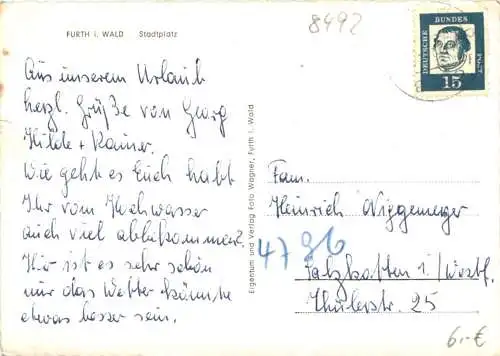 FURTH i. WALD Stadtplatz
8492
DEUTSCHE BUNDES POST
15
Aus unserem Urlaub
herzl. Grüße von Georg
Hilde + Rainer.
Wie geht es Euch habt
Ihr vom Hochwasser
auch viel abbekommen?
Hier ist es sehr schön
nur das Wetter könnte
etwas besser sein.
Eigentum und Verlag Foto Wagner, Furth i. Wald
Fam.
Heinrich Niggemeyer
4796
Salzkotten i./Westf.
Thülerstr. 25
6.-€